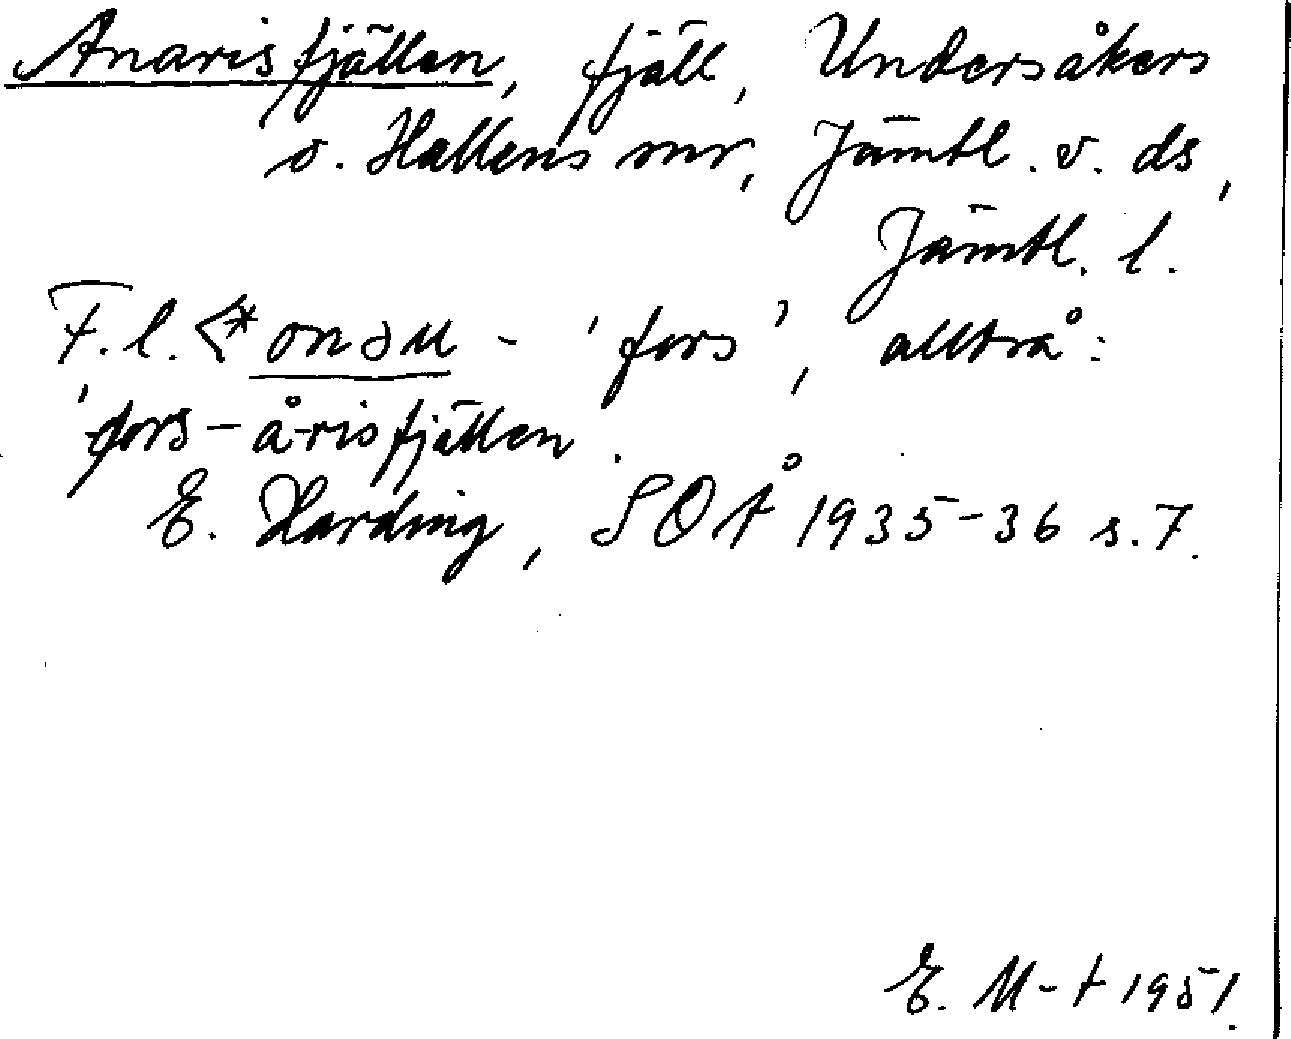 Anarisfjällen, fjäll, Undersåkers
o. Hallens snr, Jämtl. v. ds,
Jämtl. l.
F. l. <* onəu - 'fors', alltså:
'fors-å-risfjällen.
E. Harding, SOÅ 1935-36 s. 7.
E. M-t 1951.